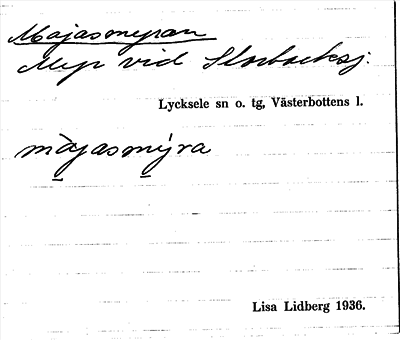 Majasmyran
Myr vid Storbacksj.
Lycksele sn o. tg, Västerbottens l.
màjasmýra
Lisa Lidberg 1936.